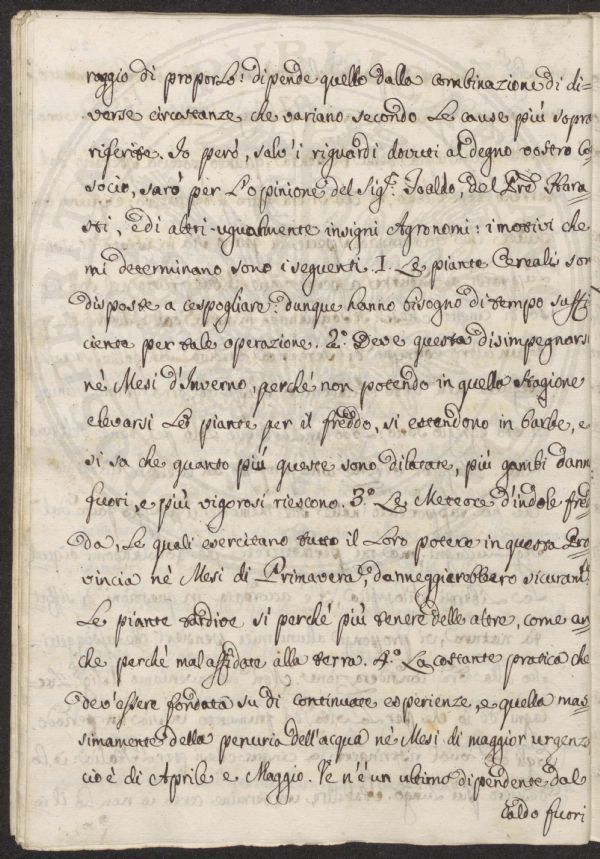 raggio di proporlo: dipende quello dalla combinazione di di=
verse circostanze che variano secondo le cause più sopra
riferite. Io però, salv'i riguardi dovuti al degno vostro
socio, sarò per l'opinione del Sig.r del
sti, e di altri ugualmente insigni Agronomi: i motivi che
mi determinano sono i seguenti. I. Le piante Cereali son
disposte a cespogliare: dunque hanno bisogno di tempo suffi
ciente per tale operazione. 2.° Deve questa disimpegnarsi
nè Mesi d'Inverno, perchè non potendo in quella stagione
elevarsi le piante per il freddo, si estendono in barbe, e
si sa che quanto più queste sono dilatate, più gambi dann
fuori, e più vigorosi riescono. 3.° Le Meteore d'indole fred
da, le quali esercitano tutto il loro potere in questa Pro
vincia nè Mesi di Primavera, danneggierebbero sicuram.te
Le piante tardive sì perchè più tenere delle altre, come an
che perchè mal affidate alla terra. 4.° La costante pratica che
dev'essere fondata su di continuate esperienze, e quella mas
simamente della penuria dell'acqua nè Mesi di maggior urgenz
cioè di Aprile e Maggio. Ve n'è un ultimo dipendente dal
caldo fuori